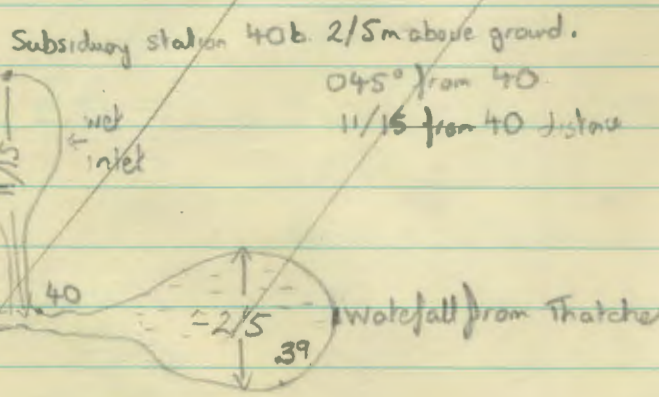 Subsiduary station 40b. 2/5m above ground.
045° from 40
11/15 from 40 distance
wet
inlet
11/15
40
Waterfall from Thatcher
=2/5
39